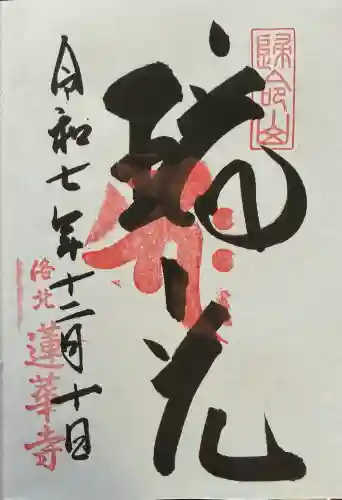 歸命山
琉花
令和七年十二月十日
洛北
蓮華寺